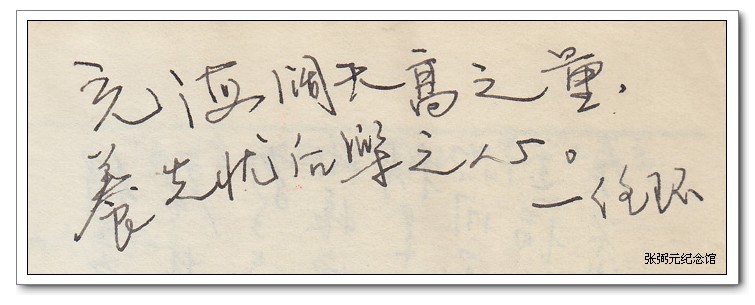 充海阔天高之量，
養先忧后樂之心。
—任环
张弼元纪念馆